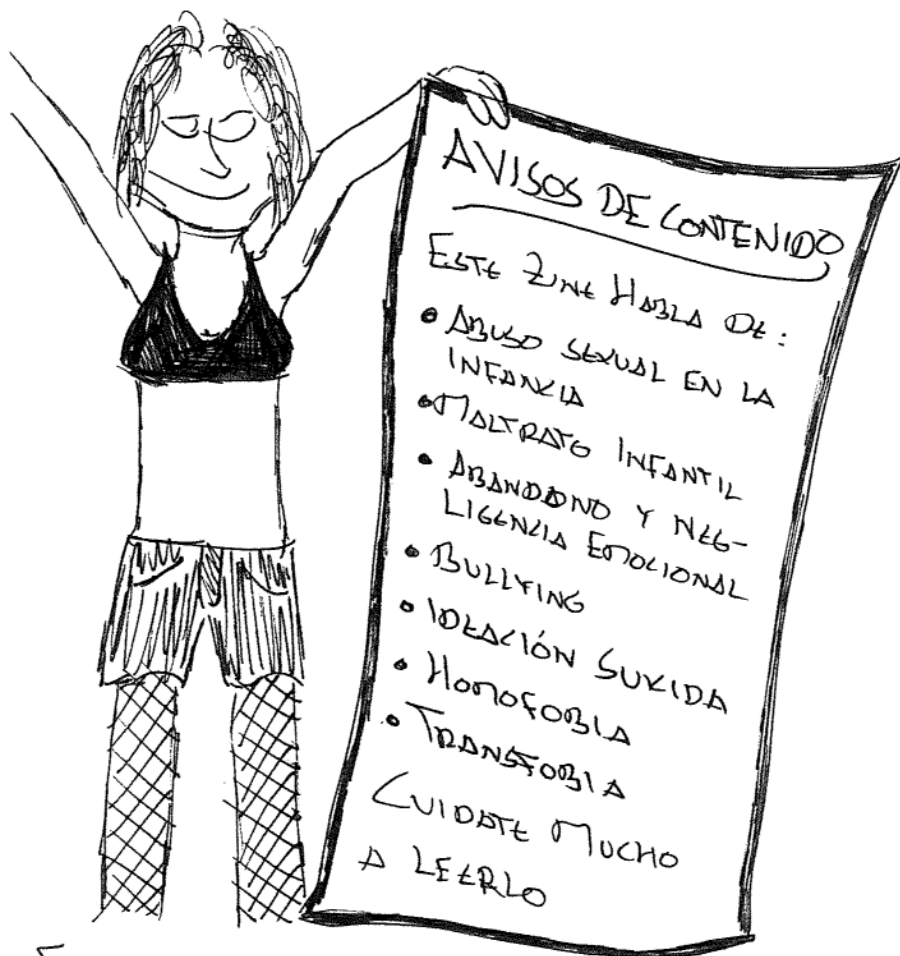 AVISOS DE CONTENIDO
ESTE ZINE HABLA DE:
• ABUSO SEXUAL EN LA
INFANCIA
• MALTRATO INFANTIL
• ABANDONO Y NEG-
LIGENCIA EMOCIONAL
• BULLYING
• IDEACIÓN SUICIDA
• HOMOFOBIA
• TRANSFOBIA
CUIDATE MUCHO
A LEERLO